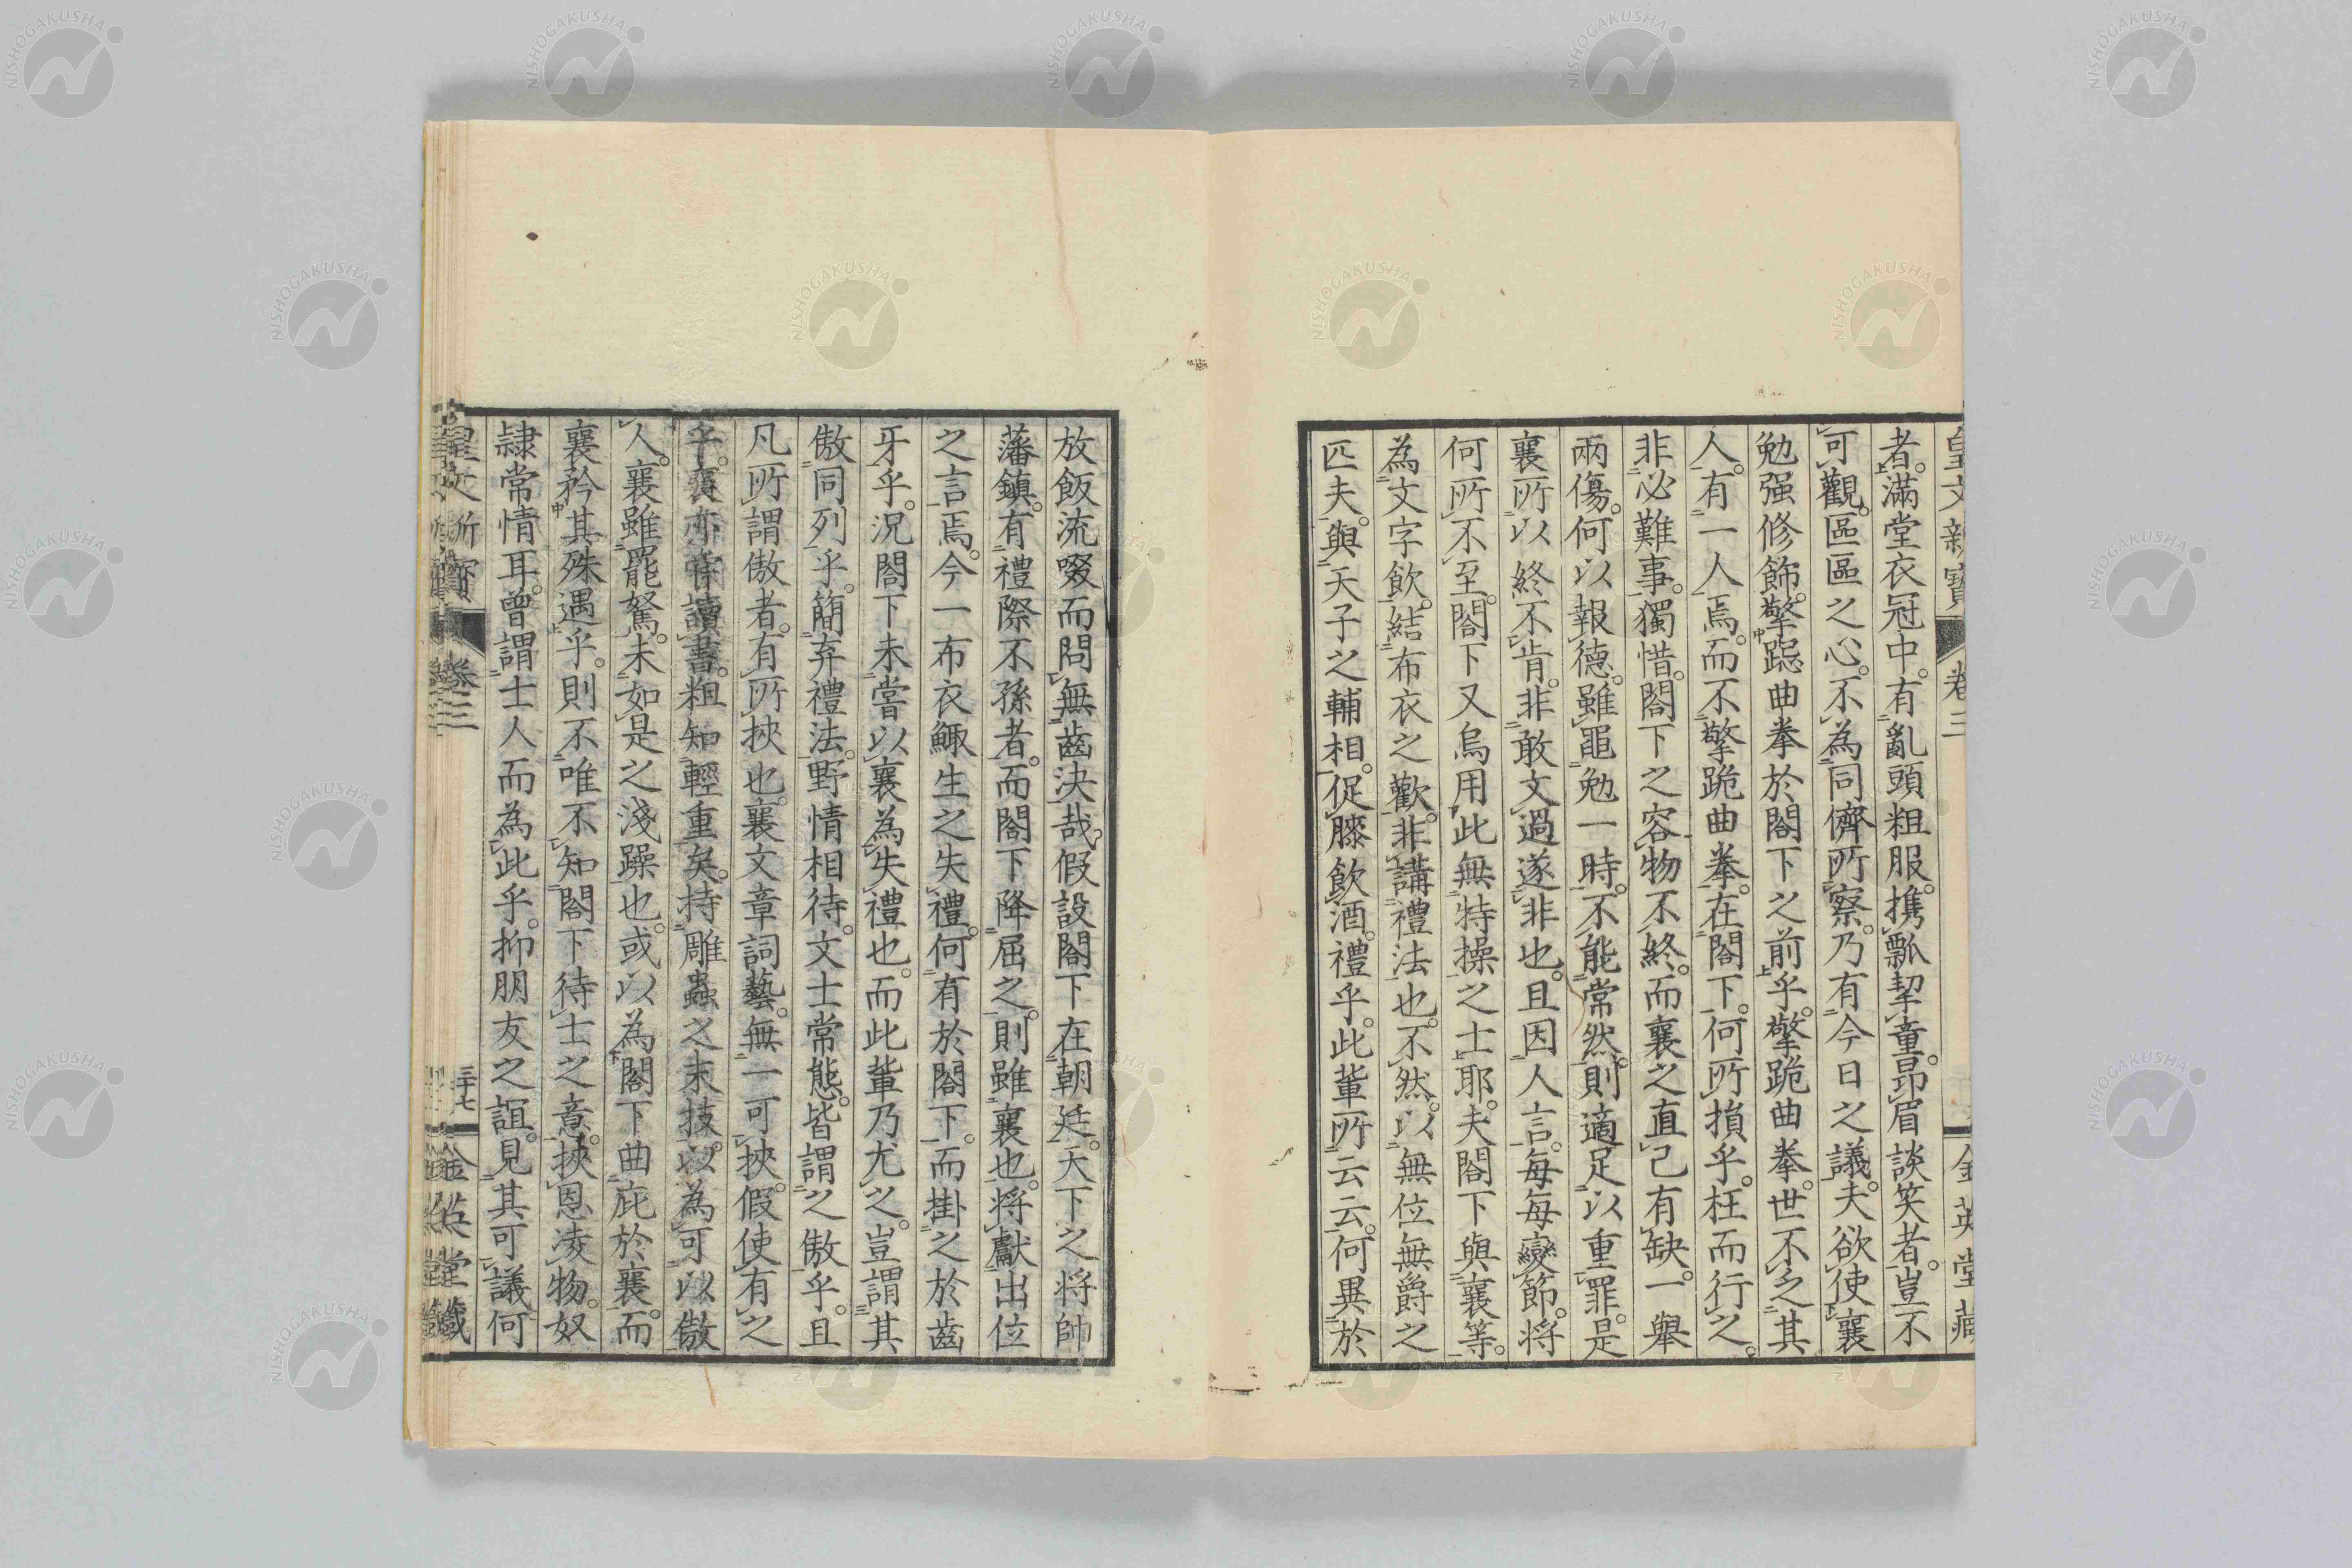 皇文新寶 卷三 金英堂藏
者。滿堂衣冠中。有亂頭粗服。携瓢挈童。昂眉談笑者。豈不
可觀。區區之心。不為同儕所察。乃有今日之議。夫欲使襄
勉强修飾。擎跽曲拳於閤下之前乎。擎跪曲拳。世不乏其
人。有一人焉。而不擎跪曲拳。在閤下。何所損乎。枉而行之。
非必難事。獨惜。閤下之容物不終。而襄之直己有缺。一舉
兩傷。何以報德。雖黽勉一時。不能常然。則適足以重罪。是
襄所以終不肯。非敢文過遂非也。且因人言。每每變節。將
何所不至。閤下又烏用此無特操之士耶。夫閤下與襄等。
為文字飲。結布衣之歡。非講禮法也。不然。以無位無爵之
匹夫。與天子之輔相。促膝飲酒。禮乎。此輩所云云。何異於
放飯流啜而問無齒決哉。假設閤下在朝廷。天下之將帥
藩鎮。有禮際不孫者。而閤下降屈之。則雖襄也。將獻出位
之言焉。今一布衣鯫生之失禮。何有於閤下。而掛之於齒
牙乎。況閤下未嘗以襄為失禮也。而此輩乃尤之。豈謂其
傲同列乎。簡弃禮法。野情相待。文士常態。皆謂之傲乎。且
凡所謂傲者。有所挾也。襄文章詞藝。無一可挾。假使有之
乎。襄亦嘗讀書。粗知輕重矣。持雕蟲之末技。以為可以傲
人。襄雖罷駑。未如是之淺躁也。或以為閤下曲庇於襄。而
襄矜其殊遇乎。則不唯不知閤下待士之意。挾恩凌物。奴
隷常情耳。曾謂士人而為此乎。抑朋友之誼。見其可議何
皇文新寶 卷三 三十七 金英堂藏